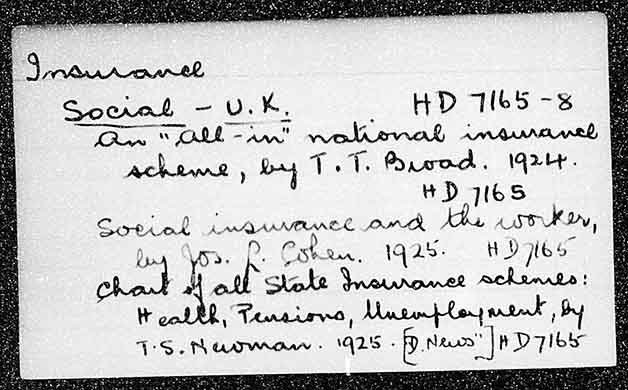 Insurance
Social - U.K. HD 7165-8
An "all-in" national insurance
scheme, by T.T. Broad. 1924.
HD 7165
Social insurance and the worker,
by Jos. L. Cohen. 1925. HD7165
Chart of all State Insurance schemes:
Health, Pensions, Unemployment, by
T.S. Newman. 1925. [D. News"] HD7165